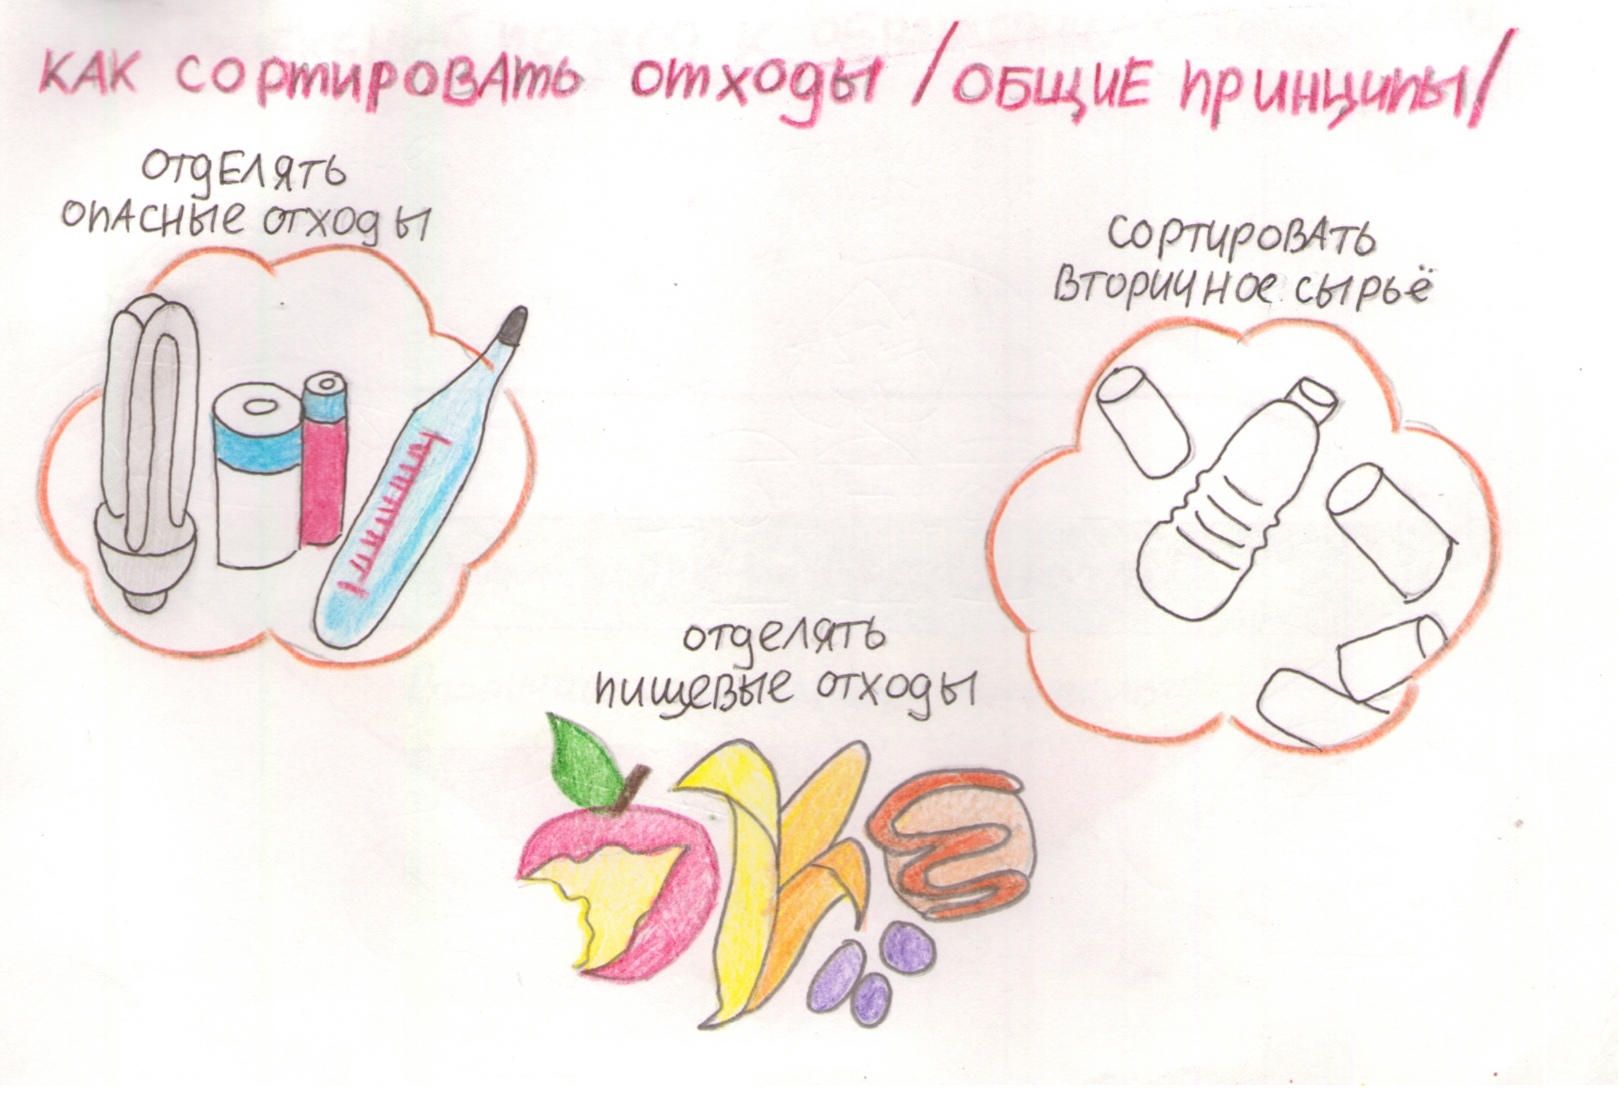 КАК СОРТИРОВАТЬ ОТХОДЫ /ОБЩИЕ ПРИНЦИПЫ/
ОТДЕЛЯТЬ
ОПАСНЫЕ ОТХОДЫ
СОРТИРОВАТЬ
ВТОРИЧНОЕ СЫРЬЁ
ОТДЕЛЯТЬ
ПИЩЕВЫЕ ОТХОДЫ